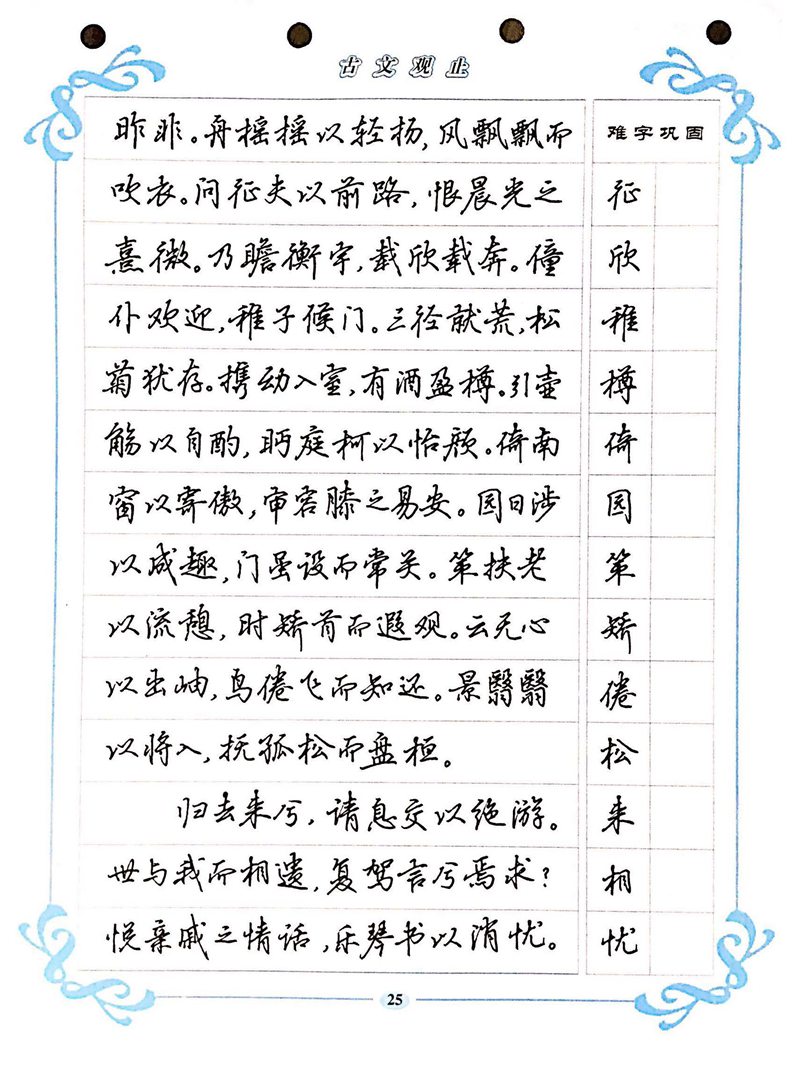 古文观止
昨非。舟摇摇以轻扬，风飘飘而
吹衣。问征夫以前路，恨晨光之
熹微。乃瞻衡宇，载欣载奔。僮
仆欢迎，稚子候门。三径就荒，松
菊犹存。携幼入室，有酒盈樽。引壶
觞以自酌，眄庭柯以怡颜。倚南
窗以寄傲，审容膝之易安。园日涉
以成趣，门虽设而常关。策扶老
以流憩，时矫首而遐观。云无心
以出岫，鸟倦飞而知还。景翳翳
以将入，抚孤松而盘桓。
归去来兮，请息交以绝游。
世与我而相遗，复驾言兮焉求？
悦亲戚之情话，乐琴书以消忧。
难字巩固
征
欣
稚
樽
倚
园
策
矫
倦
松
来
相
忧
25